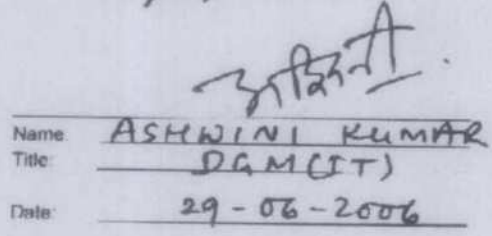 अश्विनी
Name: ASHWINI KUMAR
Title: DGM(IT)
Date: 29-06-2006